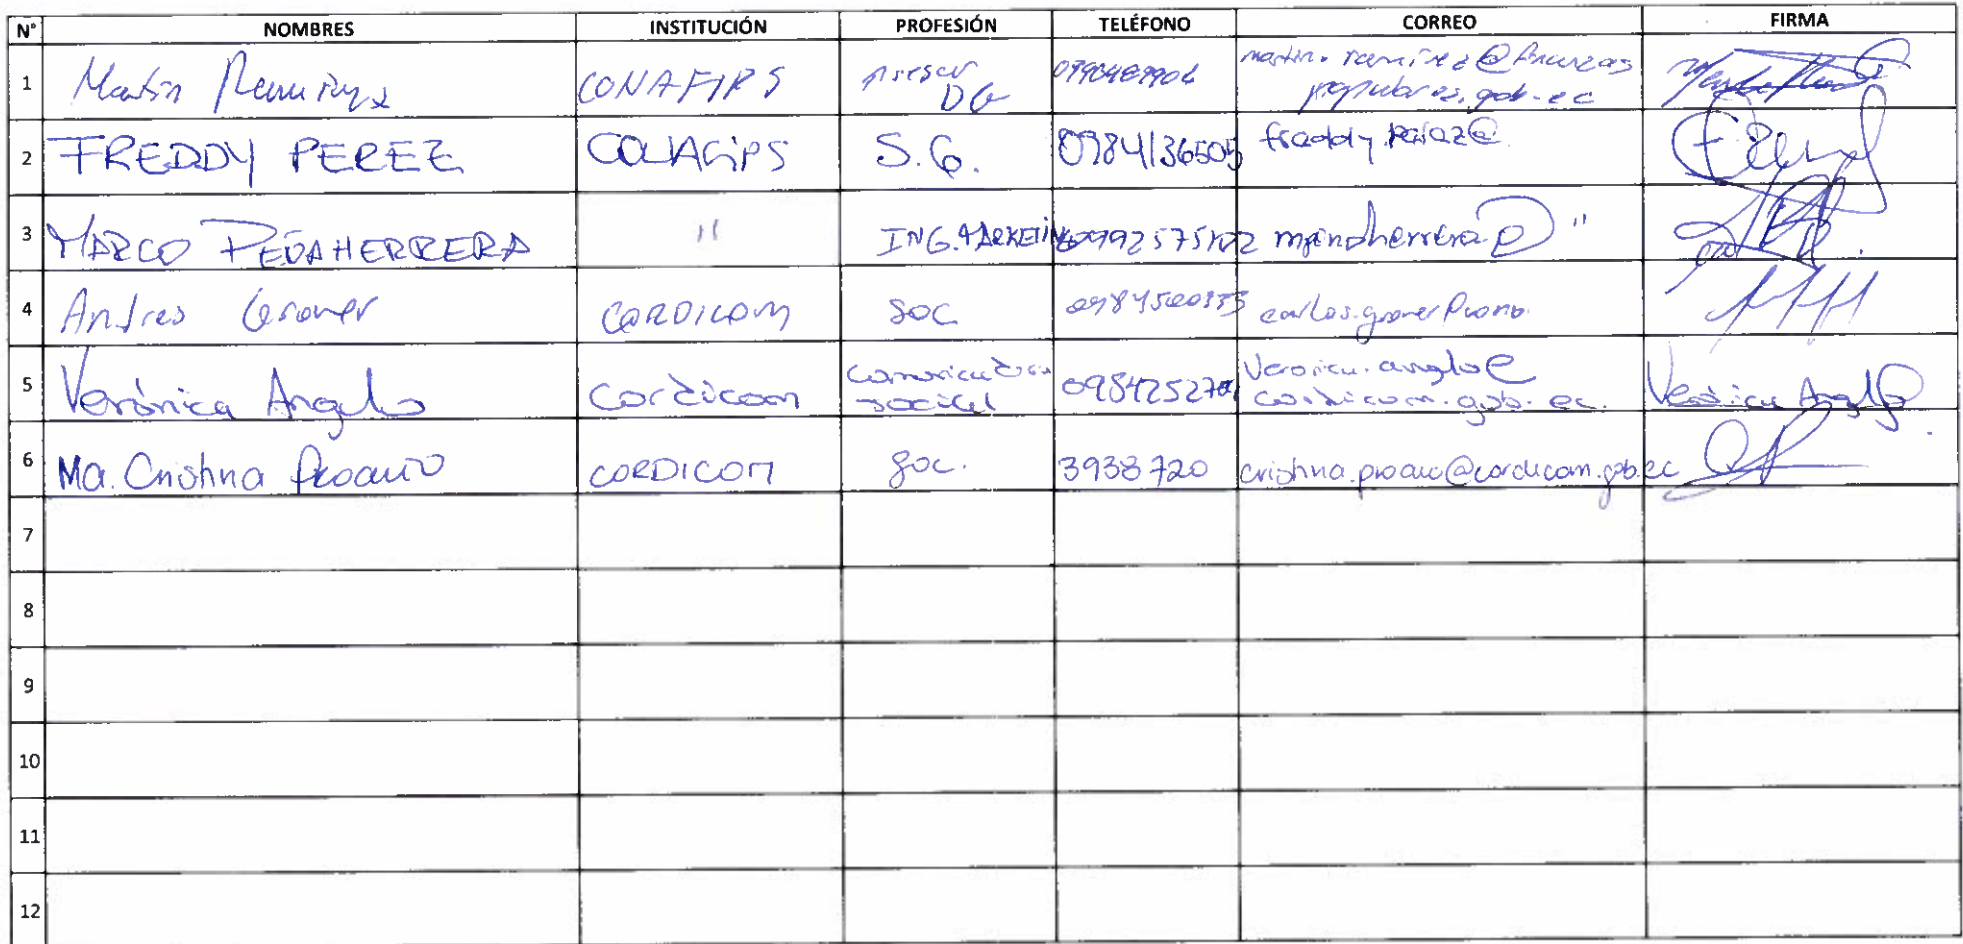 N° NOMBRES INSTITUCIÓN PROFESIÓN TELÉFONO CORREO FIRMA
1 Martín Ramírez CONAFIPS Asesor DG martin.ramirez@finanzas
populares.gob.ec
2 FREDDY PEREZ CONAFIPS S.G. 0984136505 freddy.perez@
3 MARCO PEÑAHERRERA " ING. MARKETING "
4 Andres Groner CORDICOM SOC
5 Verónica Angulo Cordicom Comunicación
social Veronica.angulo@
cordicom.gob.ec. Verónica Angulo
6 Ma. Cristina Proaño CORDICOM Soc. 3938720 cristina.proano@cordicom.gob.ec
7
8
9
10
11
12